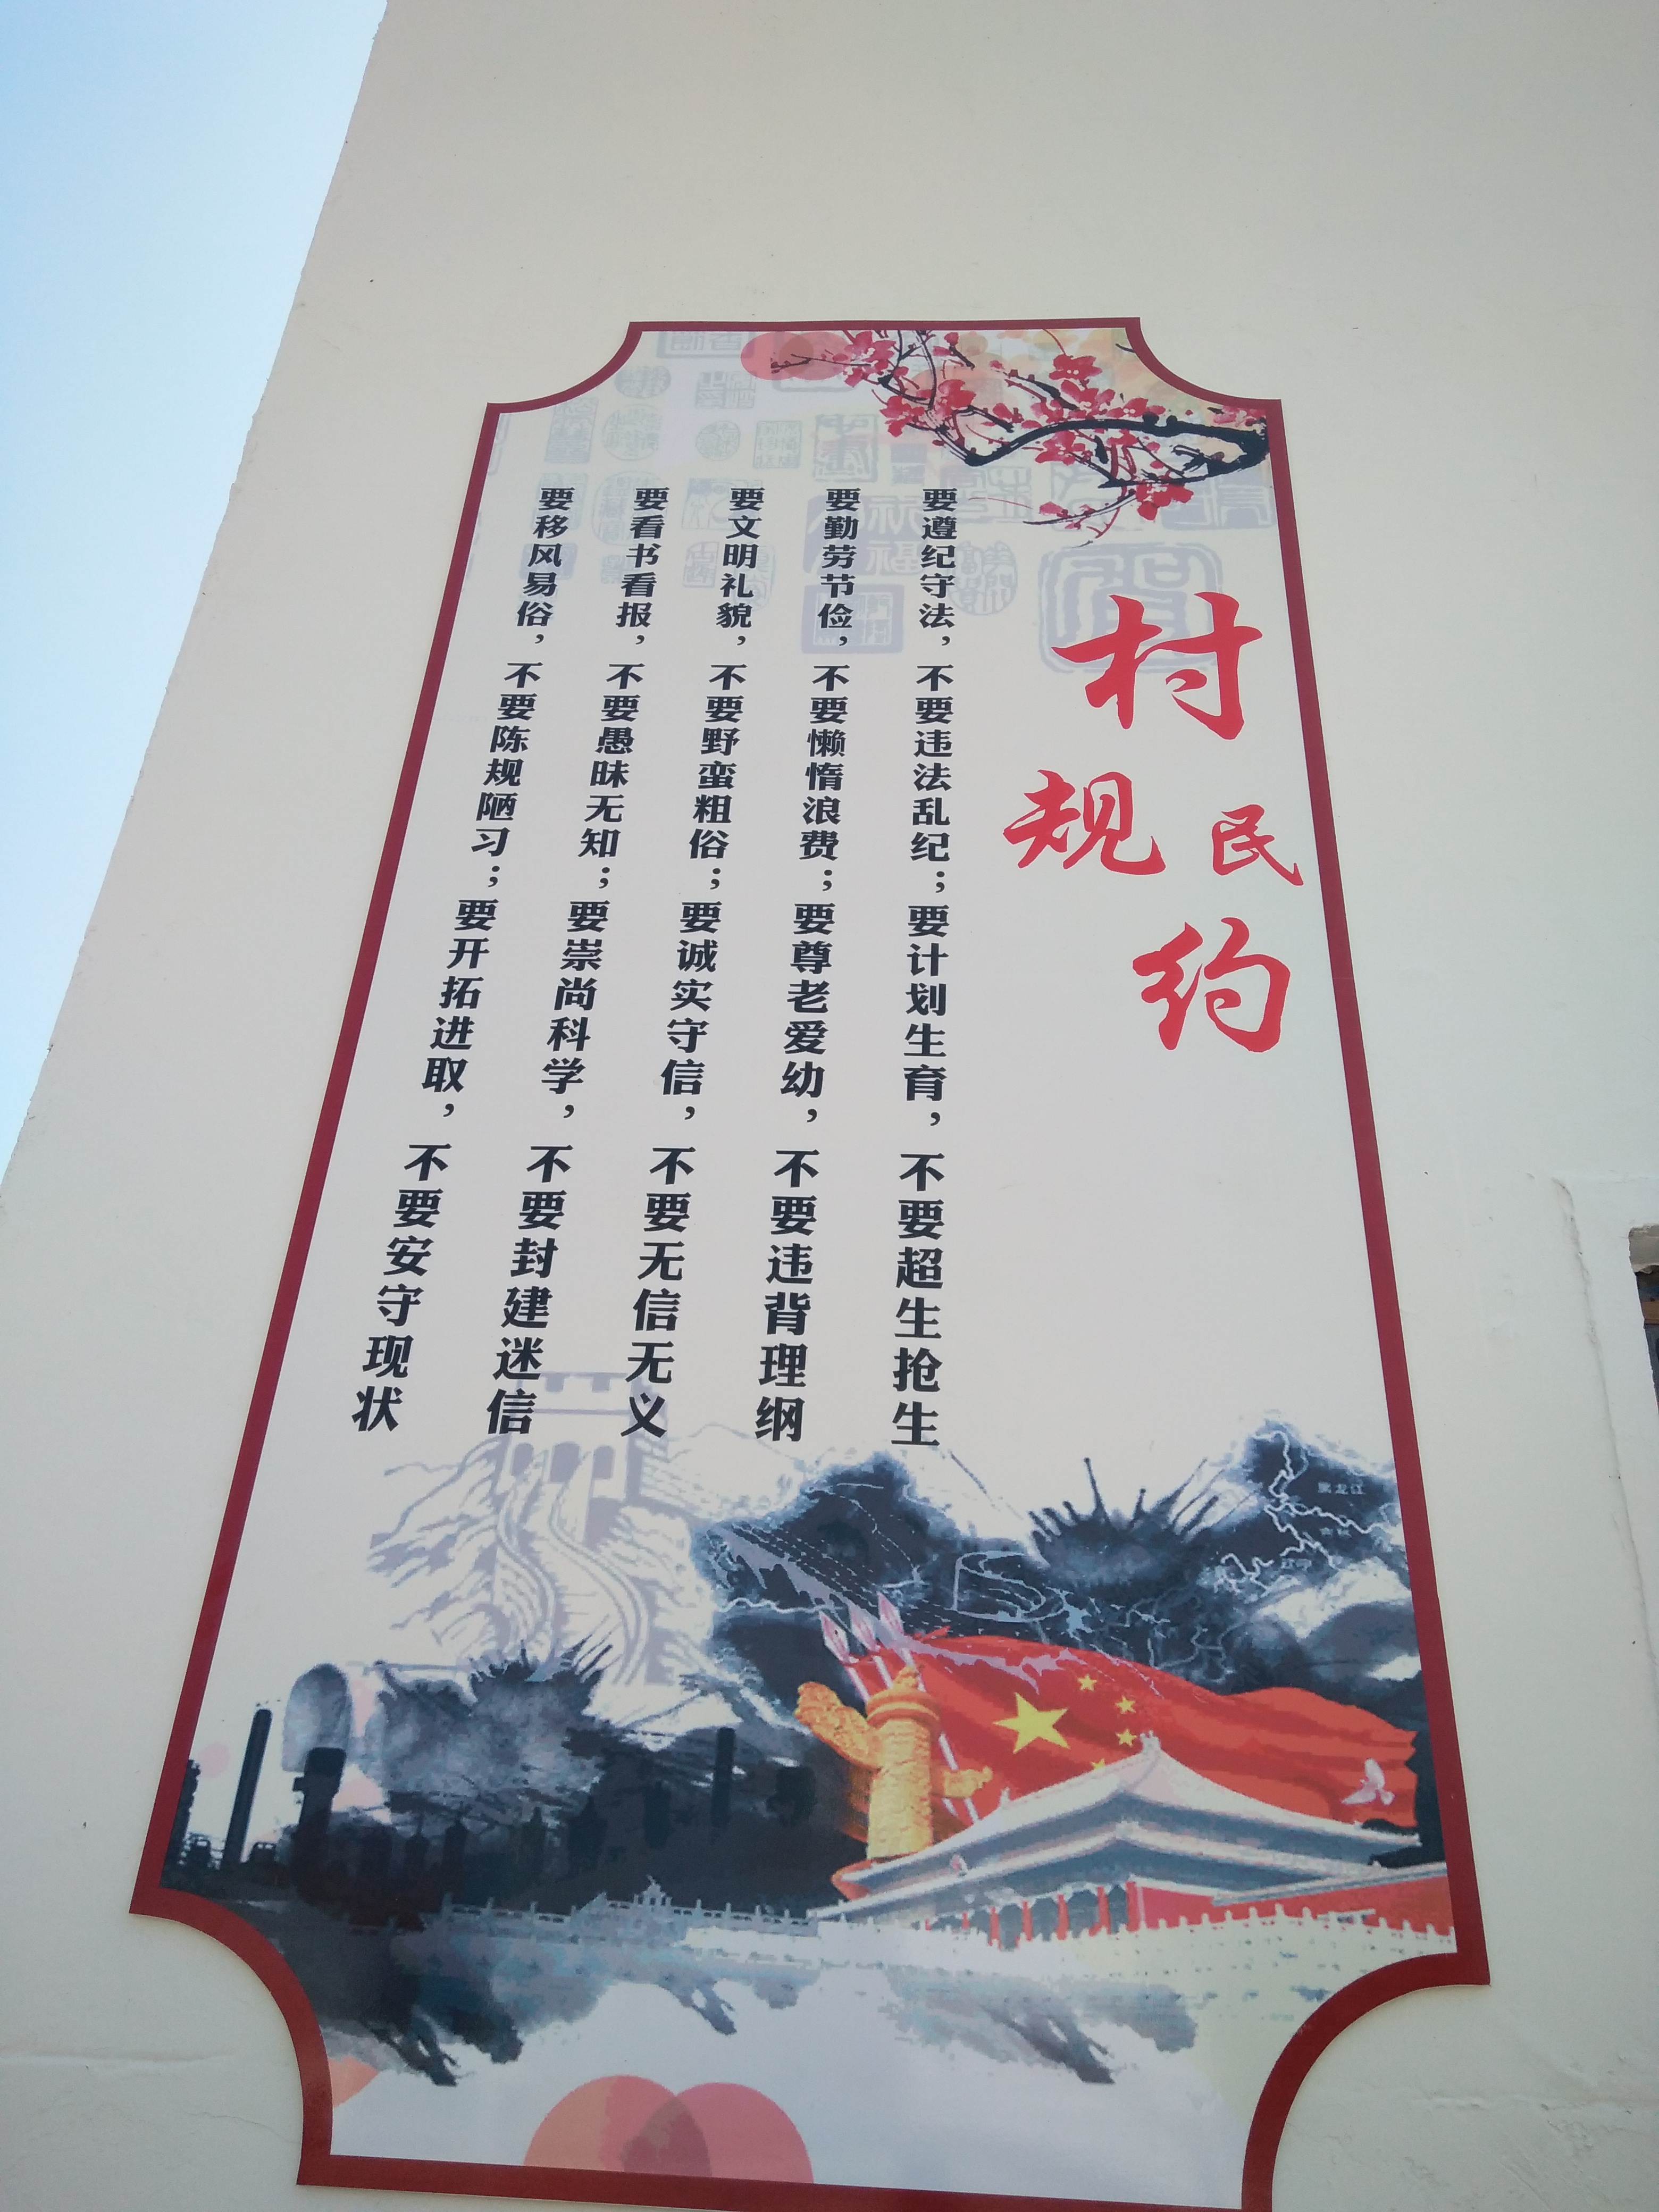 村规民约
要遵纪守法，不要违法乱纪；要计划生育，不要超生抢生
要勤劳节俭，不要懒惰浪费；要尊老爱幼，不要违背理纲
要文明礼貌，不要野蛮粗俗；要诚实守信，不要无信无义
要看书看报，不要愚昧无知；要崇尚科学，不要封建迷信
要移风易俗，不要陈规陋习；要开拓进取，不要安守现状
黑龙江
吉林
辽宁